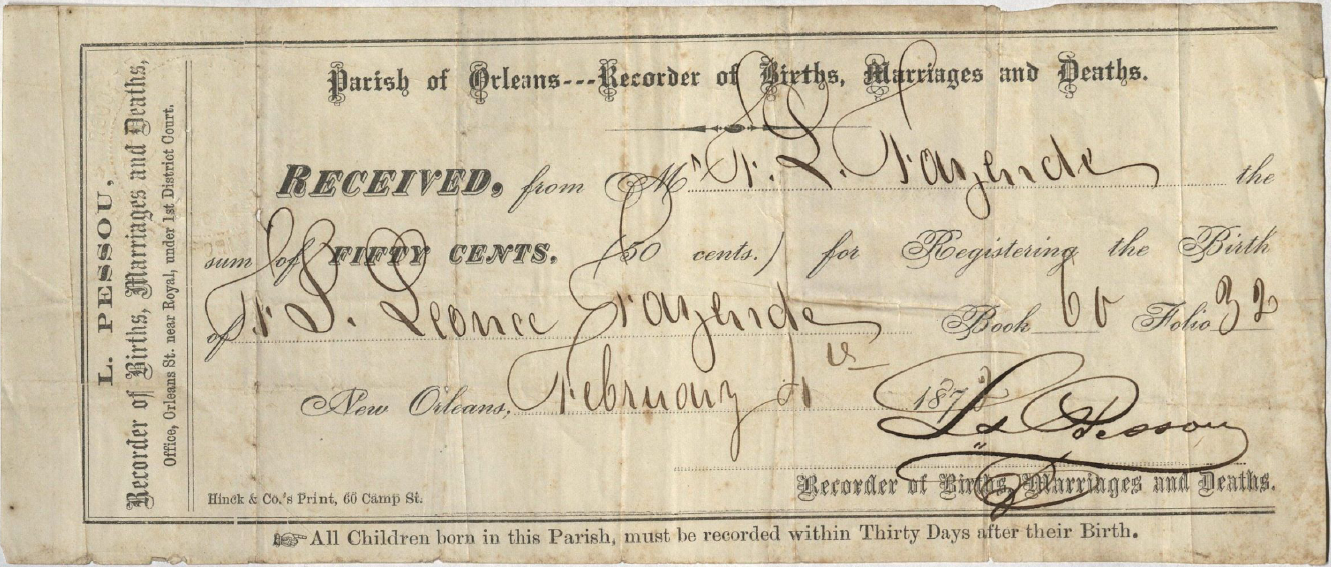 L. PESSOU,
Recorder of Births, Marriages and Deaths,
Office, Orleans St. near Royal, under 1st District Court.
Parish of Orleans---Recorder of Births, Marriages and Deaths.
RECEIVED, from Mr F. L. Fazende the
sum of FIFTY CENTS. (50 cents.) for Registering the Birth
of F. S. Leonce Fazende Book 60 Folio 32
New Orleans, February 187
Ls Pessou
Recorder of Births, Marriages and Deaths.
Hinck & Co.'s Print, 66 Camp St.
☞All Children born in this Parish, must be recorded within Thirty Days after their Birth.